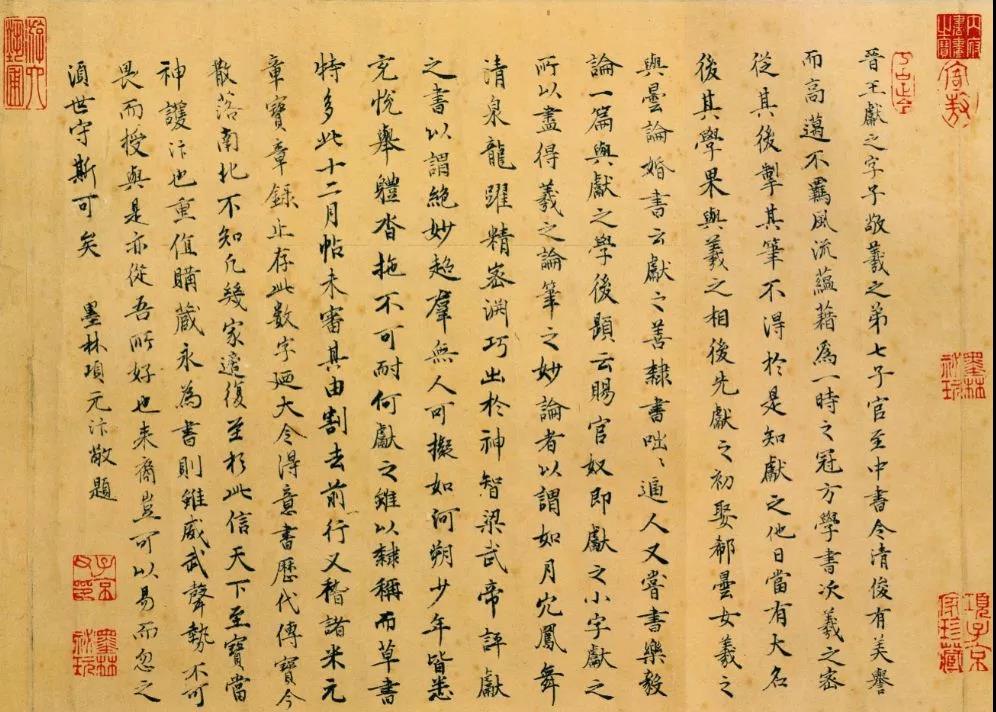 晉王獻之字子敬羲之弟七子官至中書令清俊有美譽
而高邁不羈風流蘊藉為一時之冠方學書次羲之密
從其後掣其筆不得於是知獻之他日當有大名
後其學果與羲之相後先獻之初娶郗曇女羲之
與曇論婚書云獻之善隸書咄〻逼人又嘗書樂毅
論一篇與獻之學後題云賜官奴即獻之小字獻之
所以盡得羲之論筆之妙論者以謂如丹穴鳳舞
清泉龍躍精密淵巧出於神智梁武帝評獻
之書以謂絕妙超群無人可擬如河朔少年皆悉
充悅舉軆沓拖不可耐何獻之雖以隸稱而草書
特多此十二月帖未審其由割去前行又稽諸米元
章寶章錄止存此數字廼大令得意書歷代傳寶今
散落南北不知凡幾家適復至於此信天下至寶當
神護汴也重值購藏永為書則雖威武聲勢不可
畏而授與是亦從吾所好也来裔豈可以易而忽之
湏世守斯可矣 墨林項元汴敬題
內府書畫之寶
墨林祕玩
項子京家珍藏
子京父印
墨林祕玩